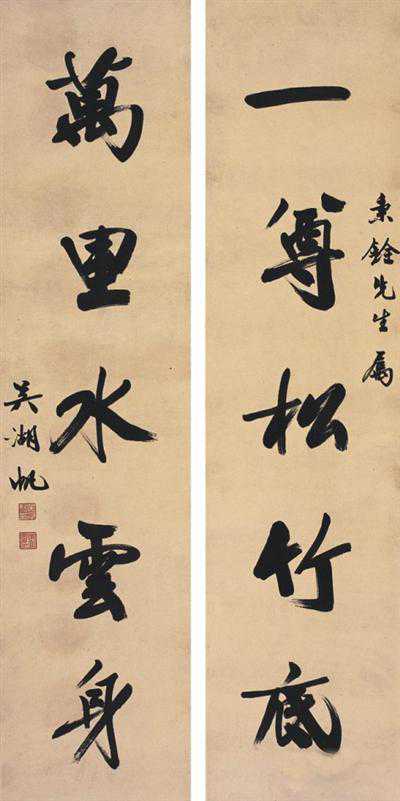 一尊松竹底
秉銓先生属
萬里水雲身
吴湖帆